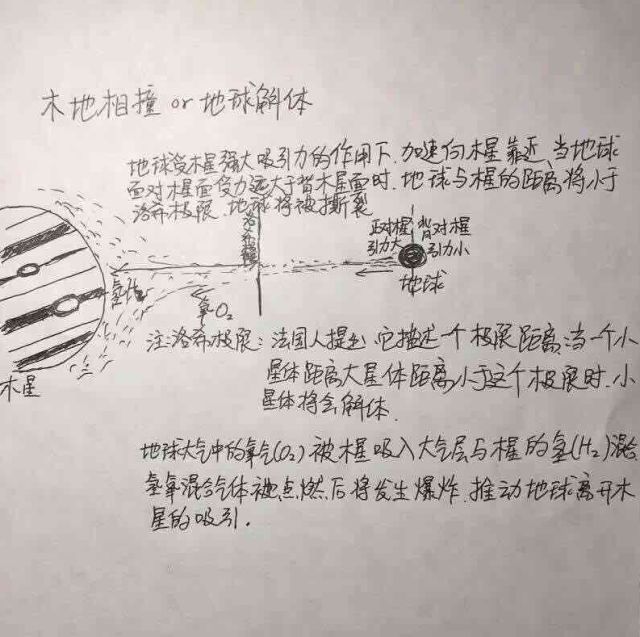 木地相撞 or 地球解体
地球受木星强大吸引力的作用下.加速向木星靠近、当地球
面对木星面受力远大于背木星面时.地球与木星的距离将小于
洛希极限.地球将被撕裂
洛希极限
正对木星 背对木星
引力大 引力小
地球
氢H₂
氧O₂
木星
注:洛希极限:法国人提出.它描述一个极限距离,当一个小
星体距离大星体距离小于这个极限时.小
星体将会解体.
地球大气中的氧气(O₂)被木星吸入大气层与木星的氢(H₂)混合
氢氧混合气体被点燃后将发生爆炸.推动地球离开木
星的吸引.